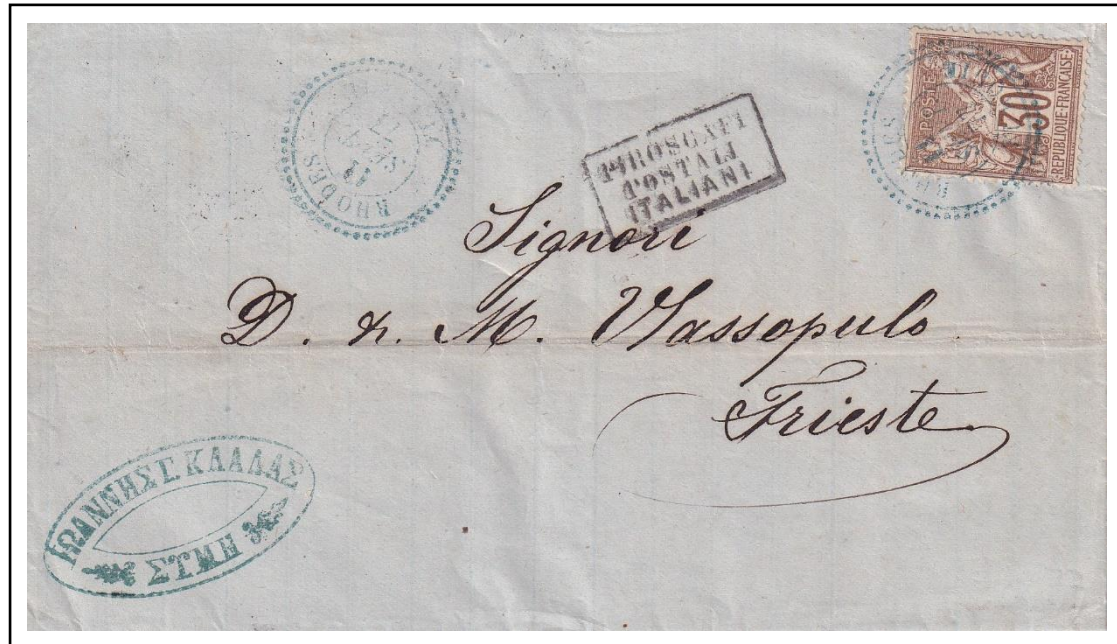 RHODES
PIROSCAFI
POSTALI
ITALIANI
POSTES
30
REPUBLIQUE FRANÇAISE
Signori
D. & M. Vassopulo
Trieste
ΙΩΑΝΝΗΣ Γ. ΚΛΑΔΑΣ
ΣΥΜΗ